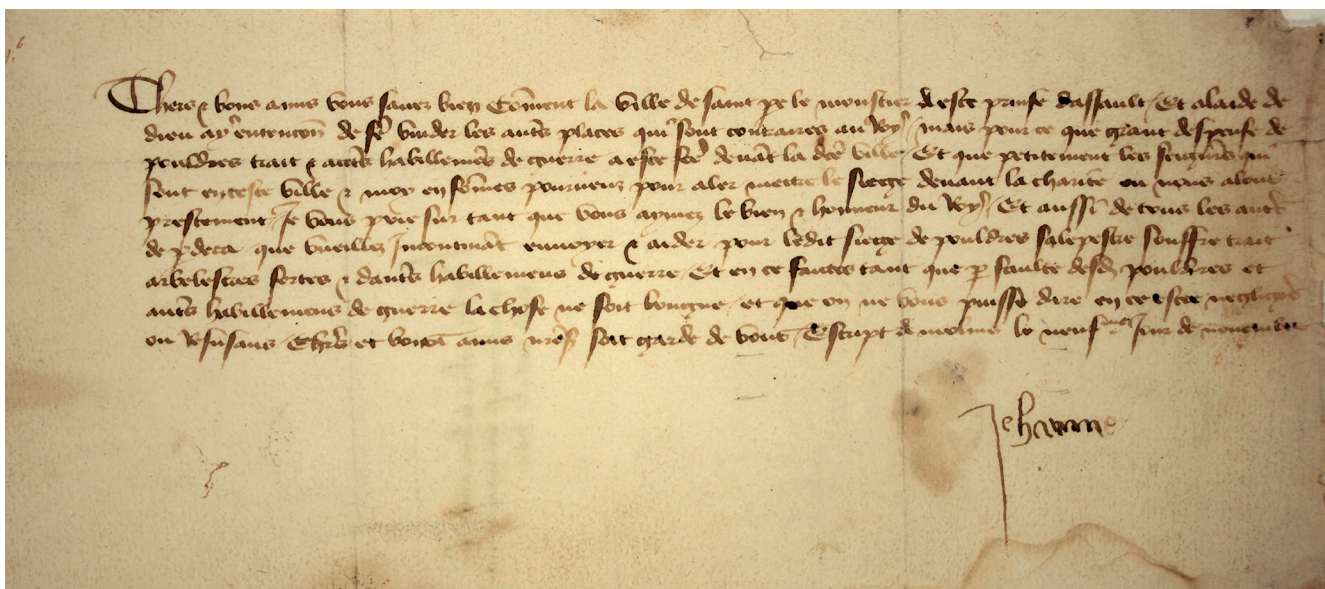 Chers et bons amis vous savez bien comment la ville de saint pe le moustier a este prinse dassault Et a laide de
dieu ay entencon de fe vuider les auts places qui sont contraires au Roy mais pour ce que grant despense de
pouldres trait et auts habillemens de guerre a este fce devant la dce ville Et que petitement les seigneurs qui
sont en ceste ville et moy en sommes pourveuz pour aler mettre le siege devant la charite ou nous alons
prestement Je vous prie sur tant que vous aymez le bien et honneur du Roy Et aussi de tous les auts
de pdeca que vueillez Incontinant envoyer et aider pour ledit siege de pouldres salepestre souffre trait
arbelestres fortes et dauts habillemens de guerre Et en ce faictes tant que p faulte desd pouldres et
auts habillemens de guerre la chose ne soit longue et que on ne vous puisse dire en ce estre negligens
ou Refusans Chiers et bons amis nre sr soit garde de vous Escript de molins le neufme Jour de novembre
Jehanne